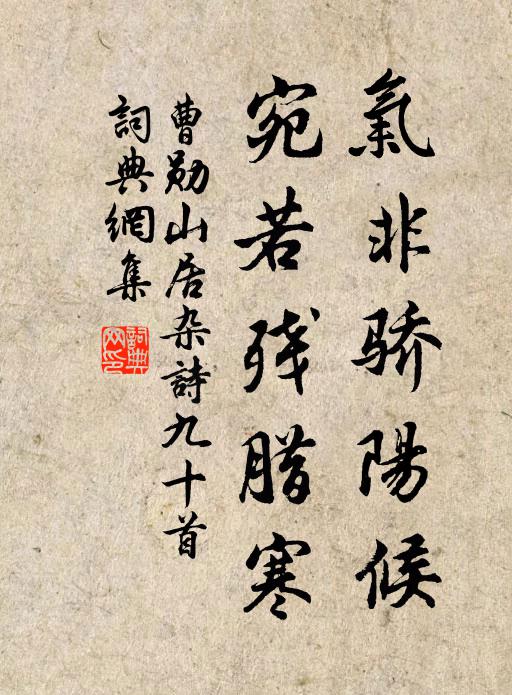 氣非骄陽候
宛若残腊寒
曹勋山居杂詩九十首
詞典網集
詞典網印